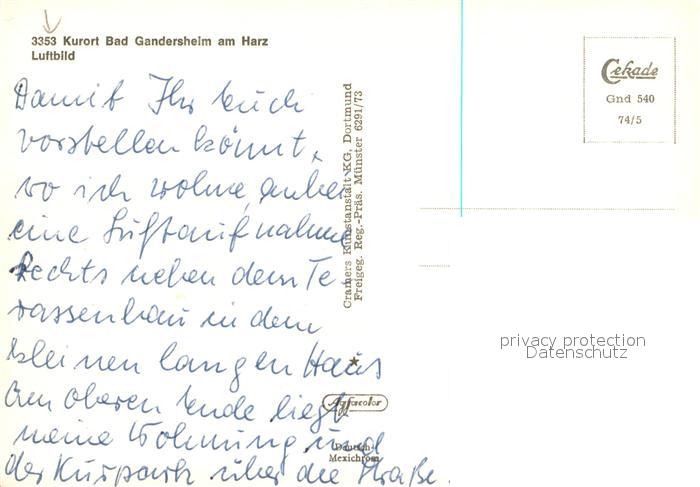 3353 Kurort Bad Gandersheim am Harz
Luftbild
Damit Ihr Euch
vorstellen könnt,
wo ich wohne, anbei
eine Luftaufnahme
Rechts neben dem Te-
rassenbau in dem
kleinen langen Haus
Am oberen Ende liegt
meine Wohnung und
der Kurpark über die Straße.
Cramers Kunstanstalt KG, Dortmund
Freigeg. Reg.-Präs. Münster 6291/73
Agfacolor
Deutsch-
Mexichrom
Cekade
Gnd 540
74/5
privacy protection
Datenschutz